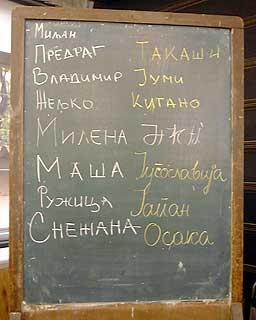 Милан
Предраг Такаши
Владимир Јуми
Жељко Китано
Милена
Маша Југославија
Ружица Јапан
Снежана Осака